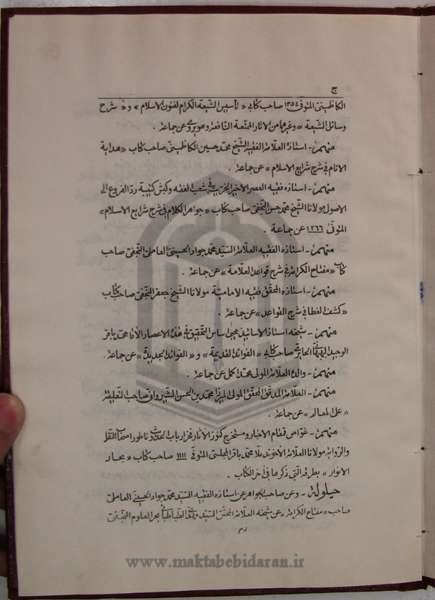 ج
الكاظميني المتوفى ١٣٥٤ صاحب كتابي « تأسيس الشيعة الكرام لفنون الاسلام » و « شرح
وسائل الشيعة » وغيرها من الآثار الممتعة النافعة وهو يروي عن جماعة .
منهم - استاذه العلامة الفقيه الشيخ محمد حسين الكاظميني صاحب كتاب « هداية
الانام في شرح شرايع الاسلام » عن جماعة .
منهم - استاذه فقيه العصر الاخير الخريت في شعب الفقه و رد الفروع الى
الاصول مولانا الشيخ محمد حسن النجفي صاحب كتاب « جواهر الكلام في شرح شرايع الاسلام »
المتوفى ١٢٦٦ عن جماعة .
منهم - استاذه الفقيه العلامة السيد محمد جواد الحسيني العاملي النجفي صاحب
كتاب « مفتاح الكرامة في شرح قواعد العلامة » عن جماعة .
منهم - استاذه المحقق فقيه الامامية مولانا الشيخ جعفر النجفي صاحب كتاب
« كشف الغطا في شرح القواعد » عن جماعة .
منهم - شيخه استاذ الاساتيذ محيي اساس التحقيق في هذه الاعصار الآقا محمد باقر
الوحيد البهبهاني الحائري صاحب كتابي « الفوائد القديمة » و « الفوائد الجديدة » عن جماعة .
منهم - والده العلامة المولى محمد اكمل عن جماعة .
منهم - العلامة المدقق المحقق المولى الميرزا محمد بن الحسن الشيرواني صاحب التعليقة
« على المعالم » عن جماعة .
منهم - غواص قمقام الاخبار ومستخرج كنوز الآثار
والرواية مولانا العلامة الآخوند ملا محمد باقر المجلسي المتوفى ١١١١ صاحب كتاب « بحار
الانوار » بطرقه التي ذكرها في آخر الكتاب .
حيلولة - وعن صاحب الجواهر عن استاذه الفقيه السيد محمد جواد الحسيني العاملي
صاحب « مفتاح الكرامة » عن شيخه العلامة السيد بحر العلوم
www.maktabebidaran.ir